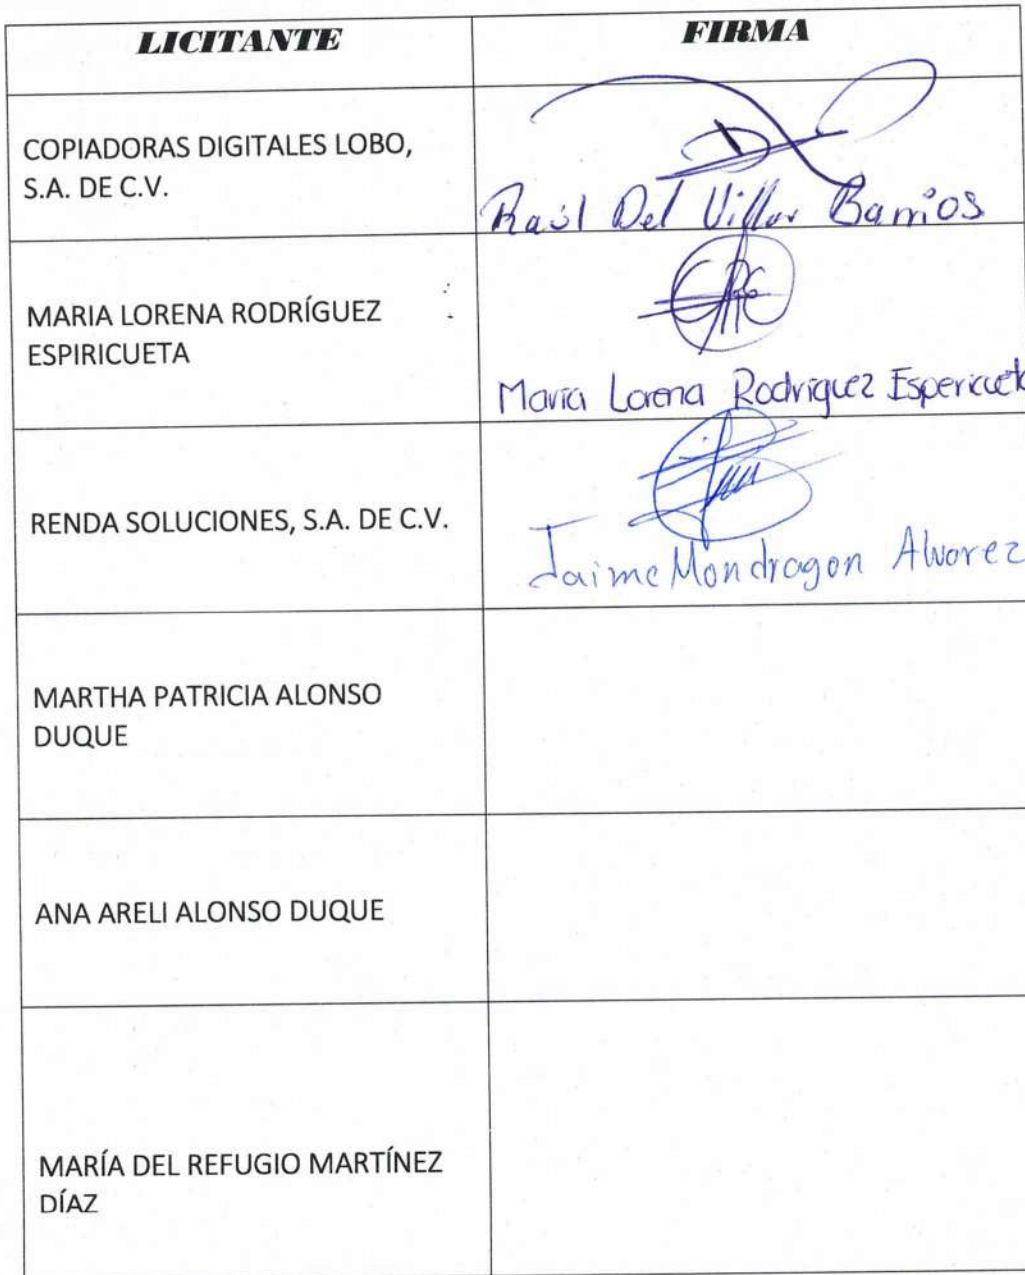 LICITANTE
FIRMA
COPIADORAS DIGITALES LOBO,
S.A. DE C.V.
Raúl Del Villar Barrios
MARIA LORENA RODRÍGUEZ
ESPIRICUETA
Maria Lorena Rodriguez Espericueta
RENDA SOLUCIONES, S.A. DE C.V.
Jaime Mondragon Alvarez
MARTHA PATRICIA ALONSO
DUQUE
ANA ARELI ALONSO DUQUE
MARÍA DEL REFUGIO MARTÍNEZ
DÍAZ